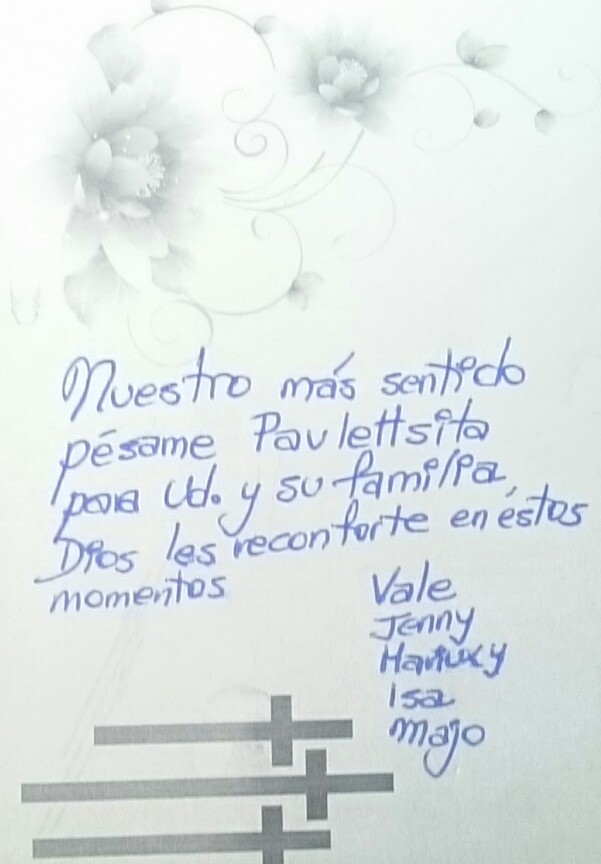 Nuestro más sentido
pésame Paulettsita
para Ud. y su familia,
Dios les reconforte en éstos
momentos
Vale
Jenny
Mariuxy
Isa
Majo